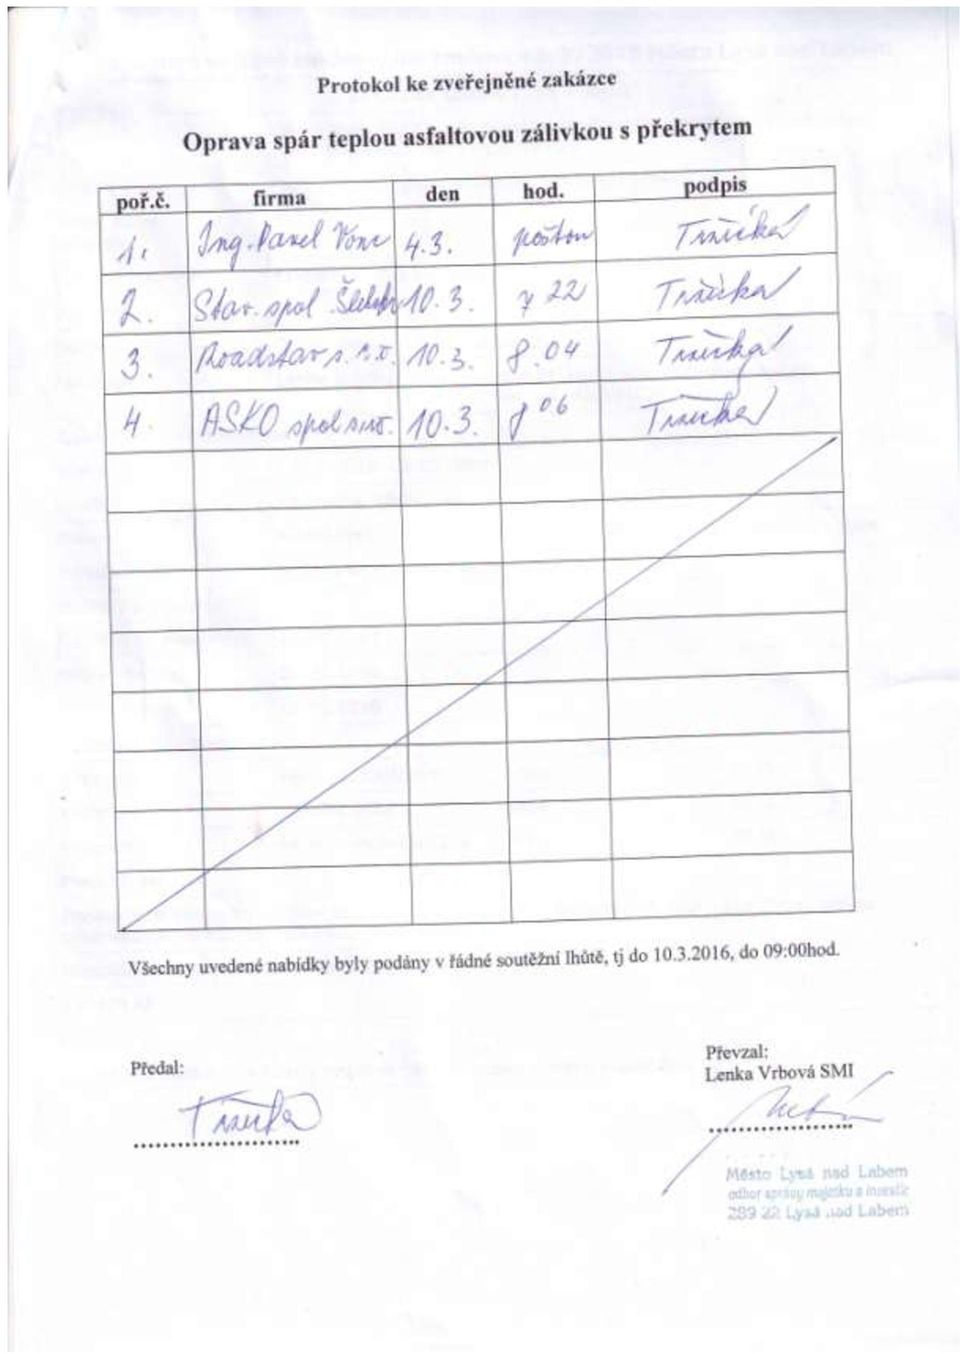 Protokol ke zveřejněné zakázce
Oprava spár teplou asfaltovou zálivkou s překrytem
poř.č. firma den hod. podpis
1. Ing. Pavel Vonc 4.3. poštou
2. Stav. spol. 10.3. 7 22
3. Roadstav s.r.o. 10.3. 8.04
4. ASKO spol s.r.o. 10.3. 8 06
Všechny uvedené nabídky byly podány v řádné soutěžní lhůtě, tj do 10.3.2016, do 09:00hod.
Předal:
Převzal:
Lenka Vrbová SMI
Město Lysá nad Labem
odbor správy majetku a investic
289 22 Lysá nad Labem